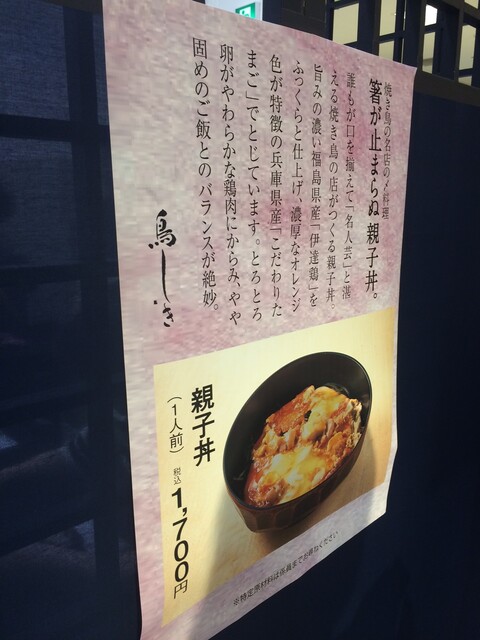 焼き鳥の名店の〆料理
箸が止まらぬ親子丼。
誰もが口を揃えて「名人芸」と湛
える焼き鳥の店がつくる親子丼。
旨みの濃い福島県産「伊達鶏」を
ふっくらと仕上げ、濃厚なオレンジ
色が特徴の兵庫県産「こだわりた
まご」でとじています。とろとろ
卵がやわらかな鶏肉にからみ、やや
固めのご飯とのバランスが絶妙。
鳥しき
親子丼
(1人前)
税込1,700円
※特定原材料は係員までお尋ねください